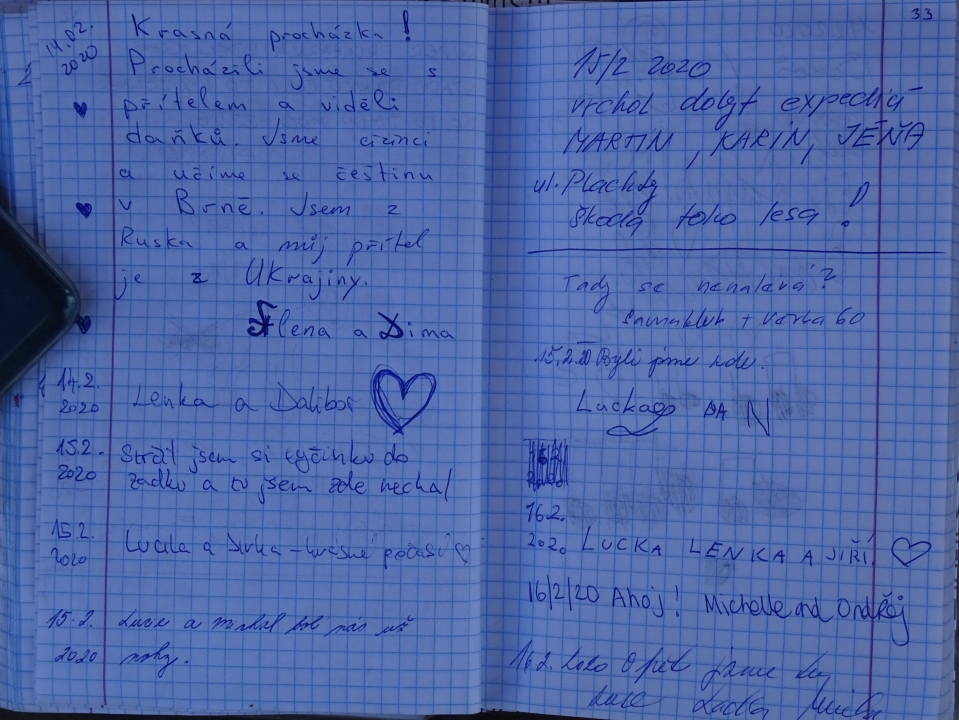 14.02.
2020
Krasná procházka!
Procházili jsme se s
přítelem a viděli
daňků. Jsme cizinci
a učíme se češtinu
v Brně. Jsem z
Ruska a můj přítel
je z Ukrajiny.
Elena a Dima
14.2.
2020
Lenka a Dalibor
15.2.
2020
Strčil jsem si tyčinku do
zadku a tu jsem zde nechal
15.2.
2020
Lucka a – krásné počasí
15.2.
2020
Luce a nás už
nohy.
33
15/2 2020
vrchol dobyt expedicí
MARTIN, KARIN, JÉŇA
ul. Plachty
škoda toho lesa!
Tady se nenalévá?
+ Vorka 60
15.2.20 Byli jsme zde.
Luckago DA N
16.2.
2020 LUCKA LENKA A JIŘÍ
16/2/20 Ahoj! Michelle and Ondřej
16.2. 2020 Opět jsme tu
Luce Radka